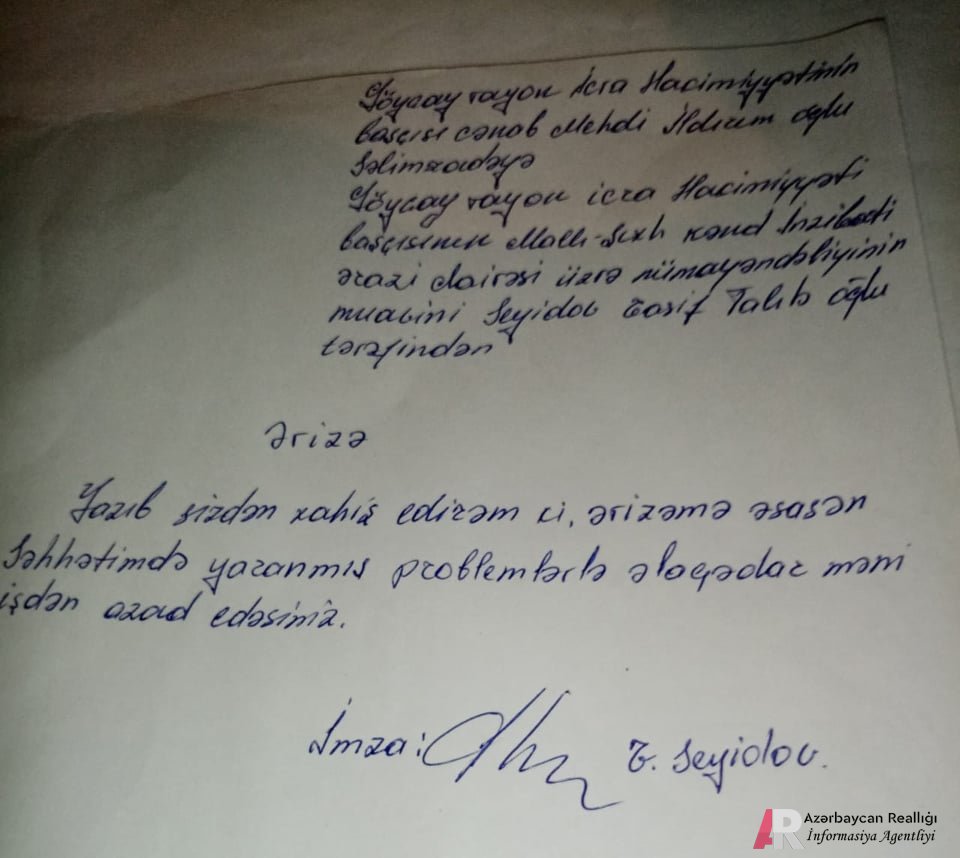 Göyçay rayon İcra Hacimiyyətinin
başçısı cənab Mehdi İldırım oğlu
Səlimzadəyə
Göyçay rayon icra Hacimiyyəti
başçısının Mallı-Şıxlı kənd İnzibati
ərazi dairəsi üzrə nümayəndəliyinin
muavini Seyidov Tasif Talıb oğlu
tərəfindən
Ərizə
Yazıb sizdən xahiş edirəm ki, ərizəmə əsasən
Səhhətimdə yaranmış problemlərlə əlaqədar məni
işdən azad edəsiniz.
İmza: T. Seyidov.
AR Azərbaycan Reallığı
İnformasiya Agentliyi